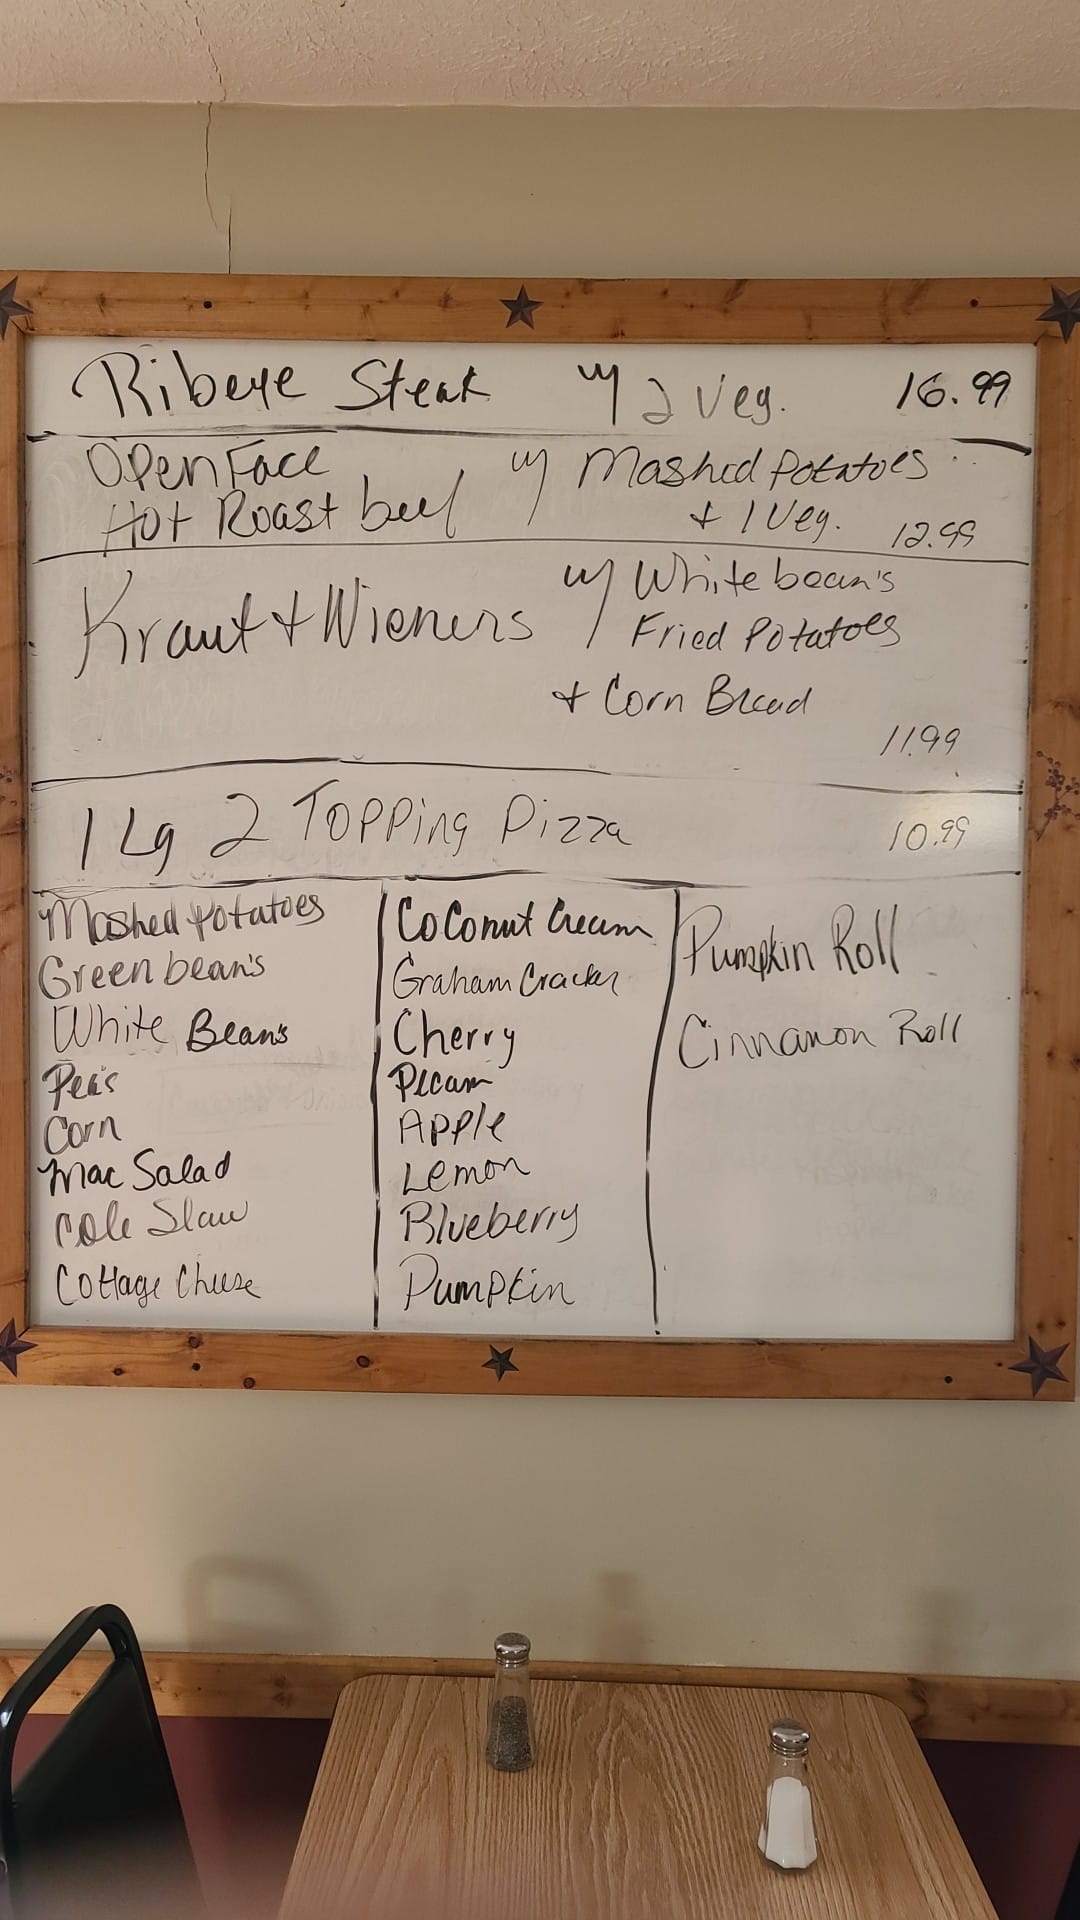 Ribeye Steak w/ 2 Veg. 16.99
Open Face
Hot Roast beef w/ Mashed Potatoes
+ 1 Veg. 12.99
Kraut + Wieners w/ White bean's
Fried Potatoes
+ Corn Bread
11.99
1 Lg 2 Topping Pizza 10.99
Mashed Potatoes
Green bean's
White Bean's
Pea's
Corn
Mac Salad
Cole Slaw
Cottage Cheese
Coconut Cream
Graham Cracker
Cherry
Pecan
Apple
Lemon
Blueberry
Pumpkin
Pumpkin Roll
Cinnamon Roll